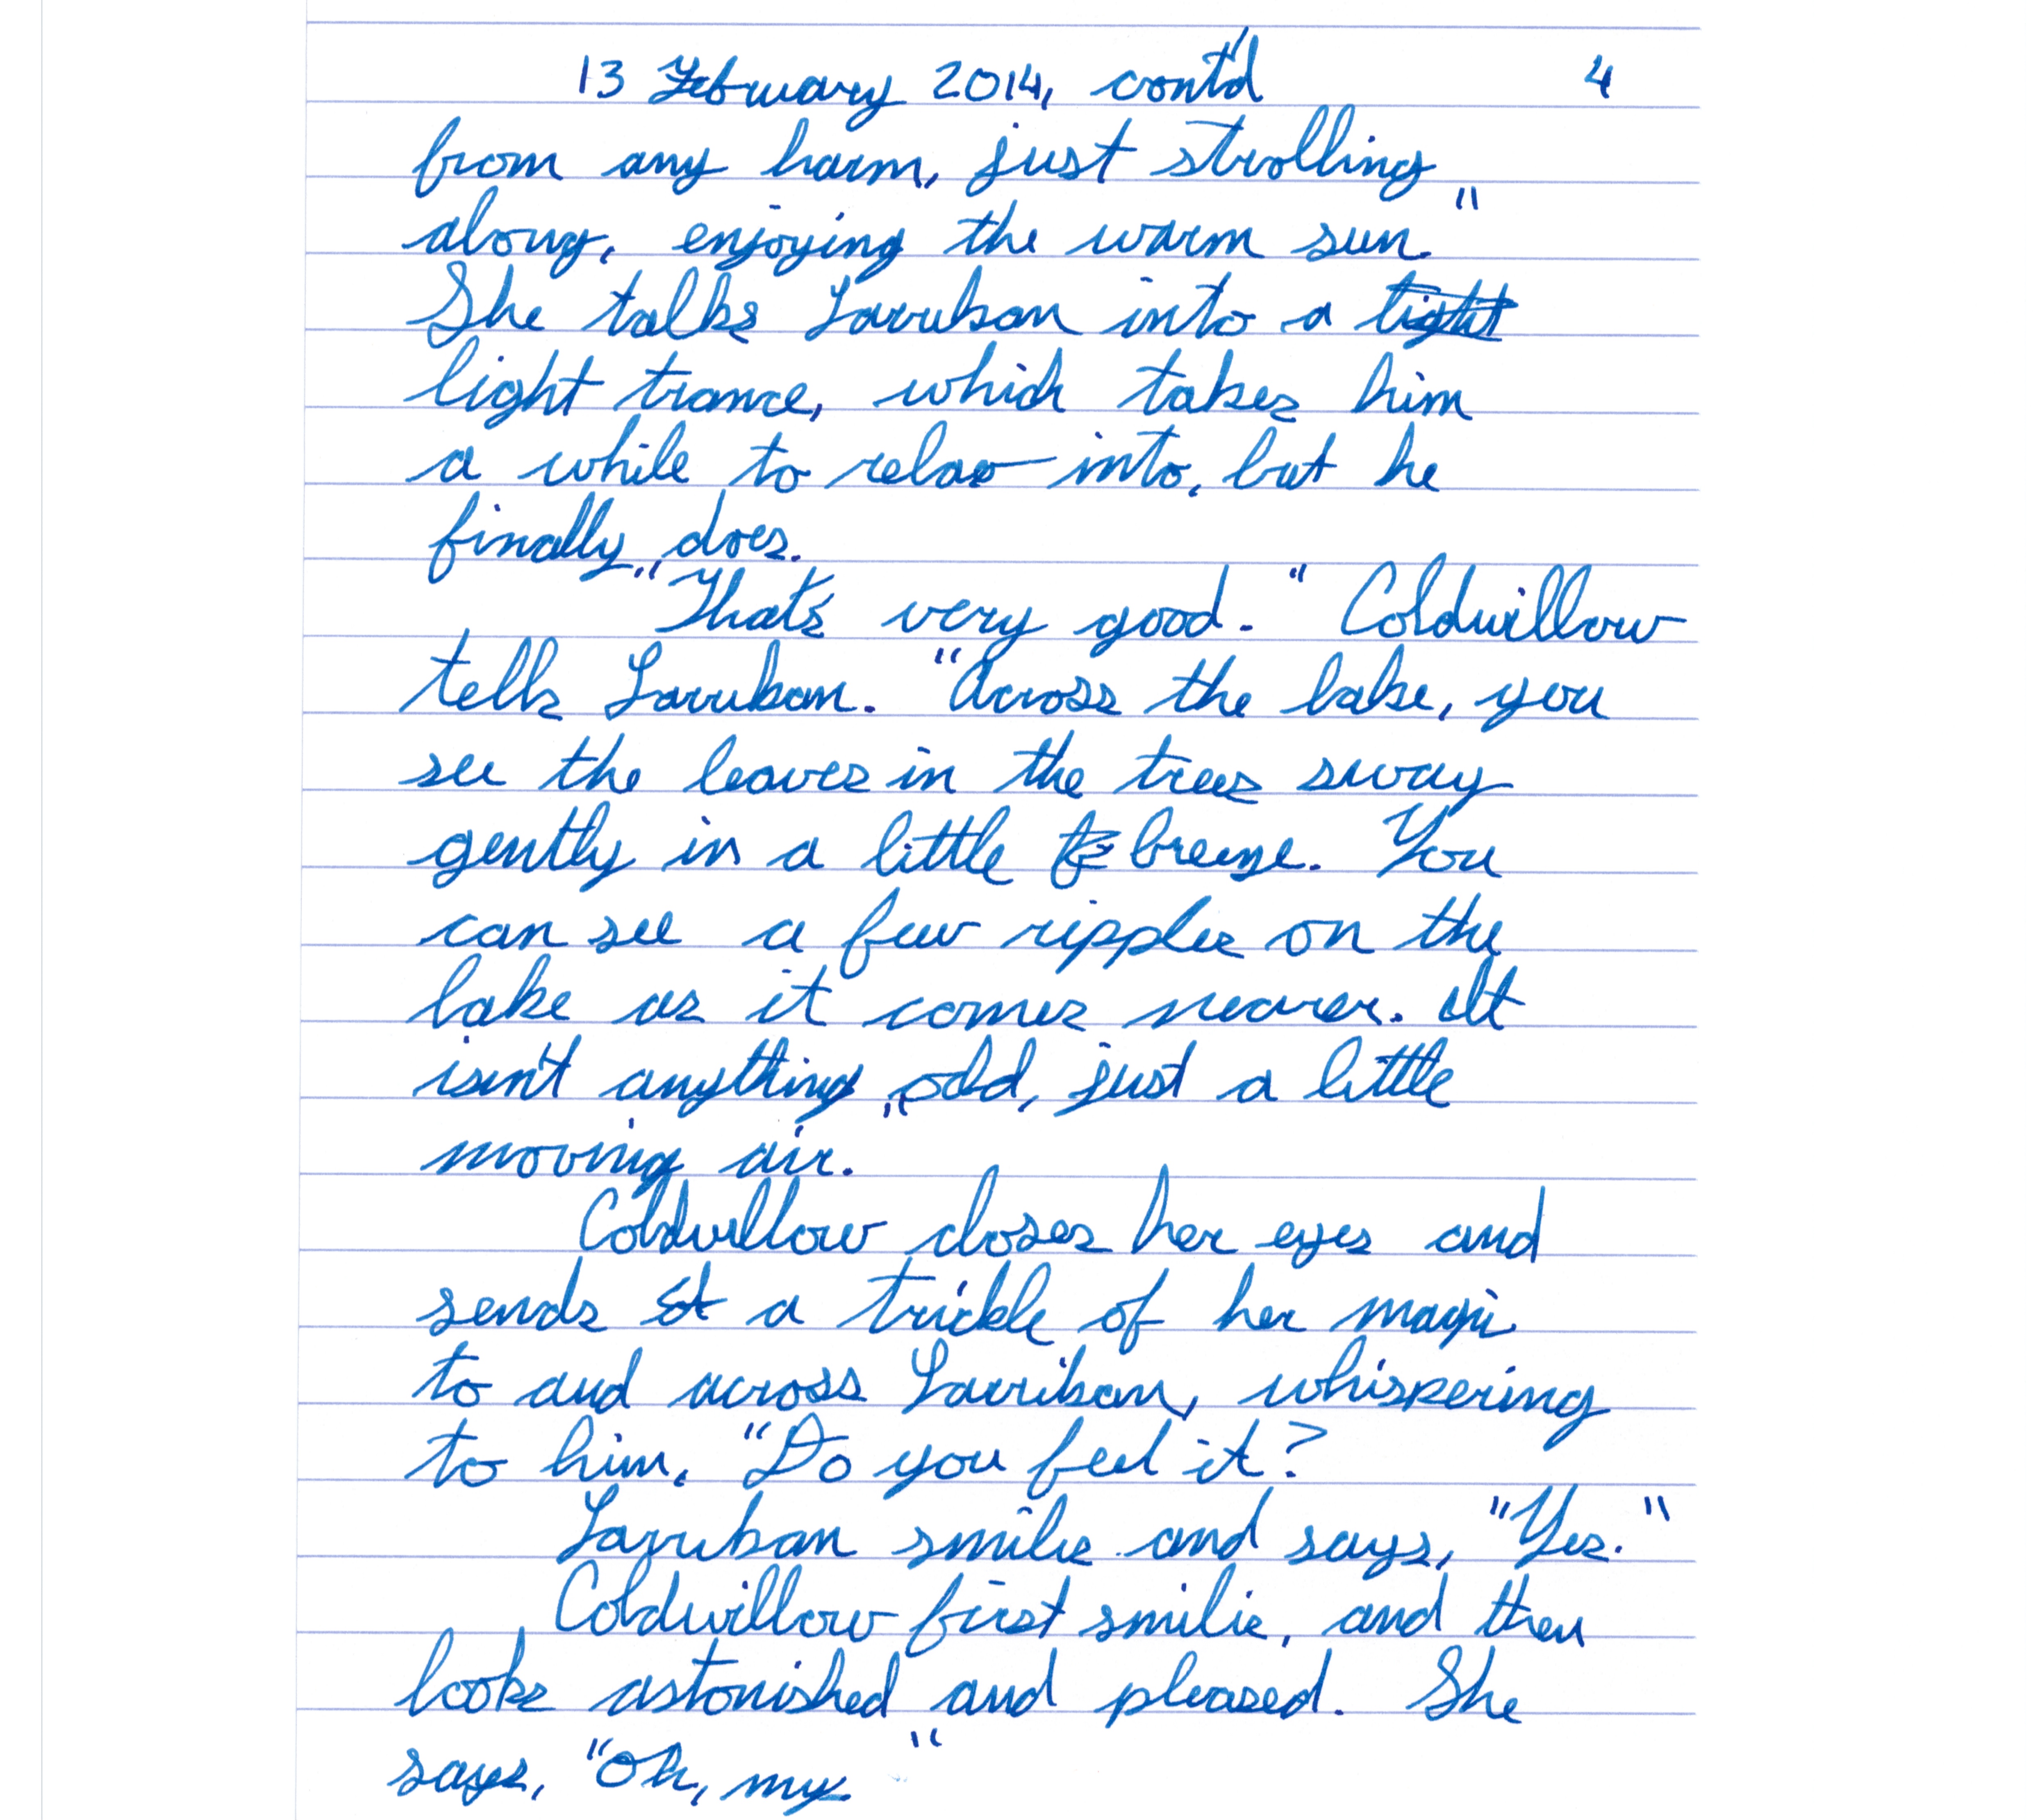 13 February 2014, cont'd 4
from any harm, just strolling
along, enjoying the warm sun."
She talks Larribon into a tight
light trance, which takes him
a while to relax into, but he
finally does.
"That's very good." Coldwillow
tells Larribon. "Across the lake, you
see the leaves in the trees sway
gently in a little breeze. You
can see a few ripples on the
lake as it comes nearer. It
isn't anything odd, just a little
moving air."
Coldwillow closes her eyes and
sends a trickle of her magic
to and across Larribon, whispering
to him, "Do you feel it?
Larribon smiles and says, "Yes."
Coldwillow first smiles, and then
looks astonished and pleased. She
says, "Oh, my"